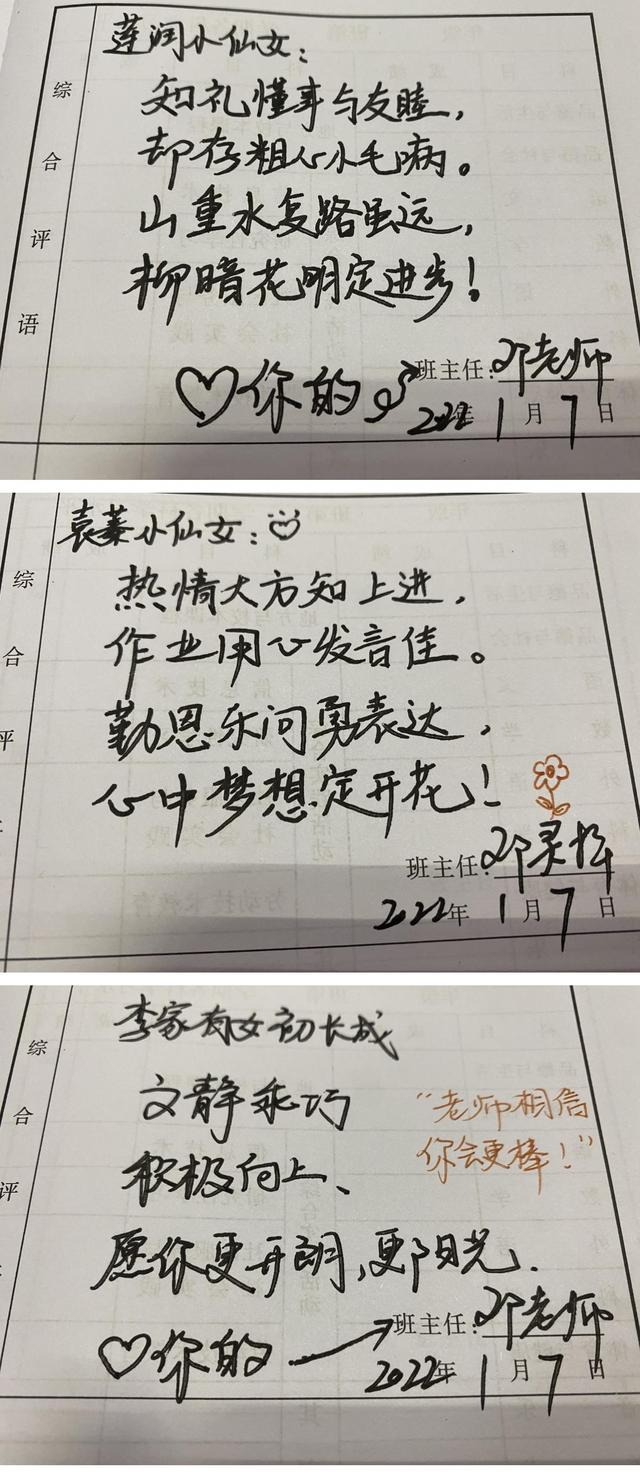 综合评语
莲润小仙女：
知礼懂事与友睦，
却存粗心小毛病。
山重水复路虽远，
柳暗花明定进步！
♡你的
班主任：邓老师
2022年1月7日
综合评
袁蓁小仙女：
热情大方知上进，
作业用心发音佳。
勤思乐问勇表达，
心中梦想定开花！
班主任：邓灵格
2022年1月7日
综合评
李家有女初长成
文静乖巧
积极向上、
"老师相信
你会更棒！"
愿你更开朗，更阳光.
♡你的
班主任：邓老师
2022年1月7日